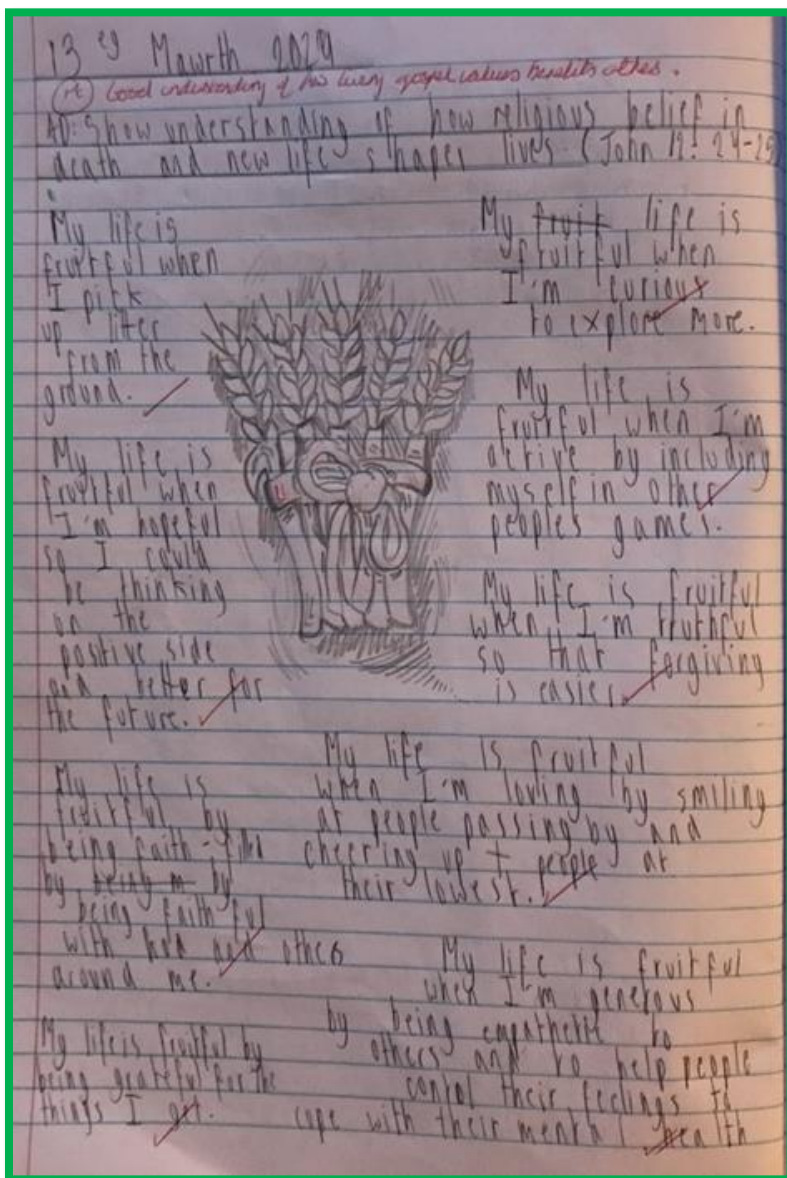 13eg Mawrth 2024
Good understanding of how living gospel values benefits others.
AD: Show understanding of how religious belief in
death and new life shapes lives. (John 12: 24-25)
My life is
fruitful when
I pick
up liter
from the
ground.
My life is
fruitful when
I'm hopeful
so I could
be thinking
on the
positive side
and better for
the future.
My life is
fruitful by
being faith-filled
by being m by
being faithful
with God and others
around me.
My life is fruitful by
being grateful for the
things I get.
My fruit life is
fruitful when
I'm curious
to explore more.
My life is
fruitful when I'm
active by including
myself in other
peoples games.
My life is fruitful
when I'm truthful
so that forgiving
is easier.
My life is fruitful
when I'm loving by smiling
at people passing by and
cheering up people at
their lowest.
My life is fruitful
when I'm generous
by being empathetic to
others and to help people
contol their feelings to
cope with their mental health